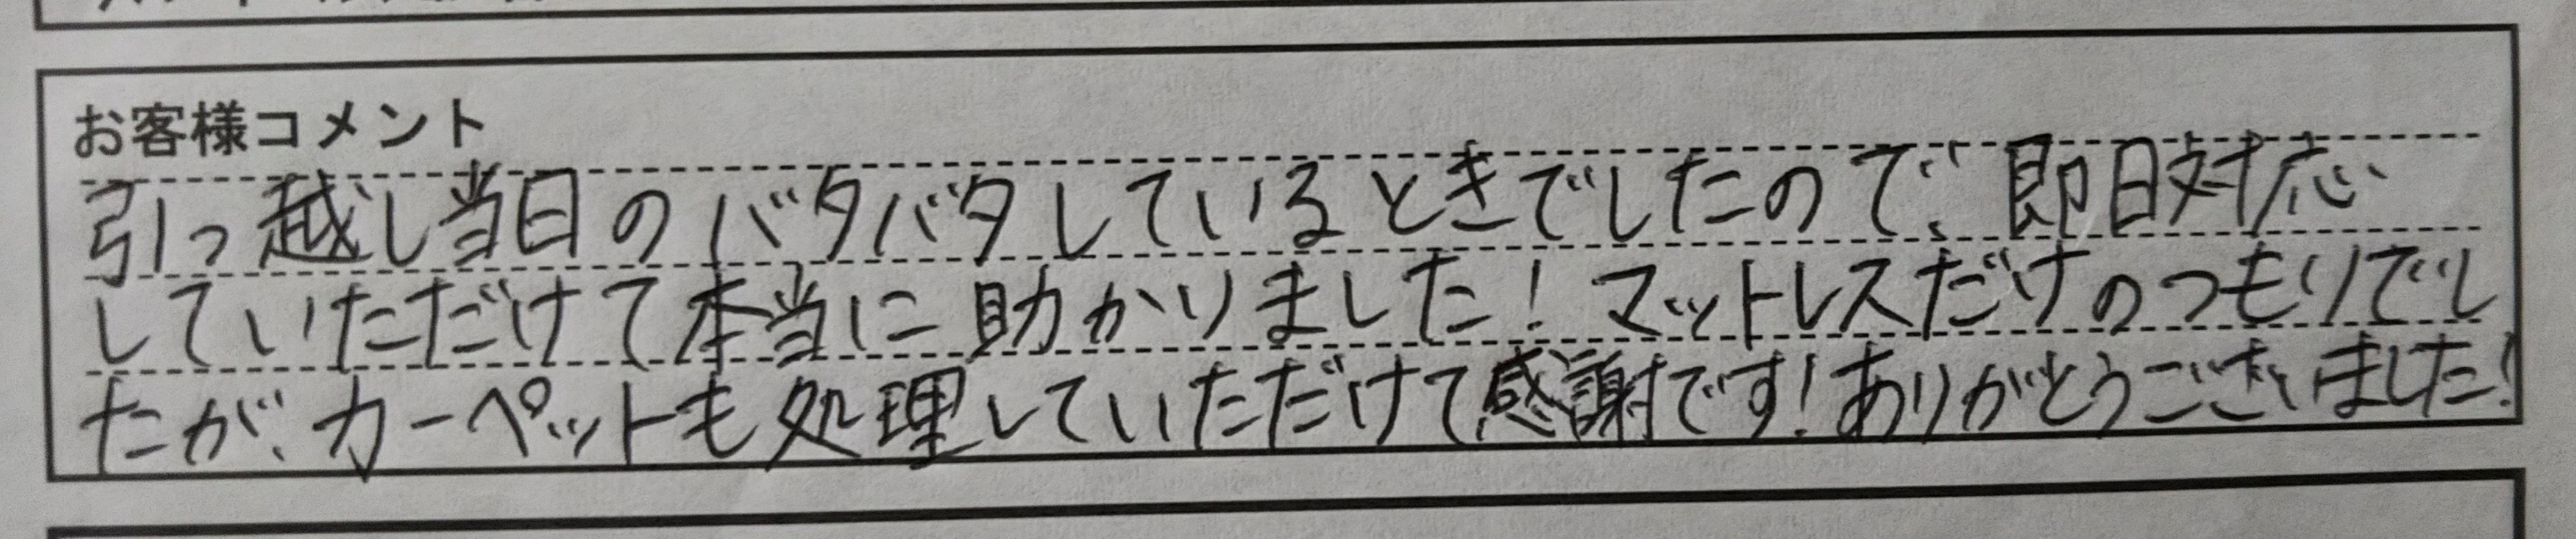 お客様コメント
引っ越し当日のバタバタしているときでしたので、即日対応
していただけて本当に助かりました！マットレスだけのつもりでし
たが、カーペットも処理していただけて感謝です！ありがとうございました！